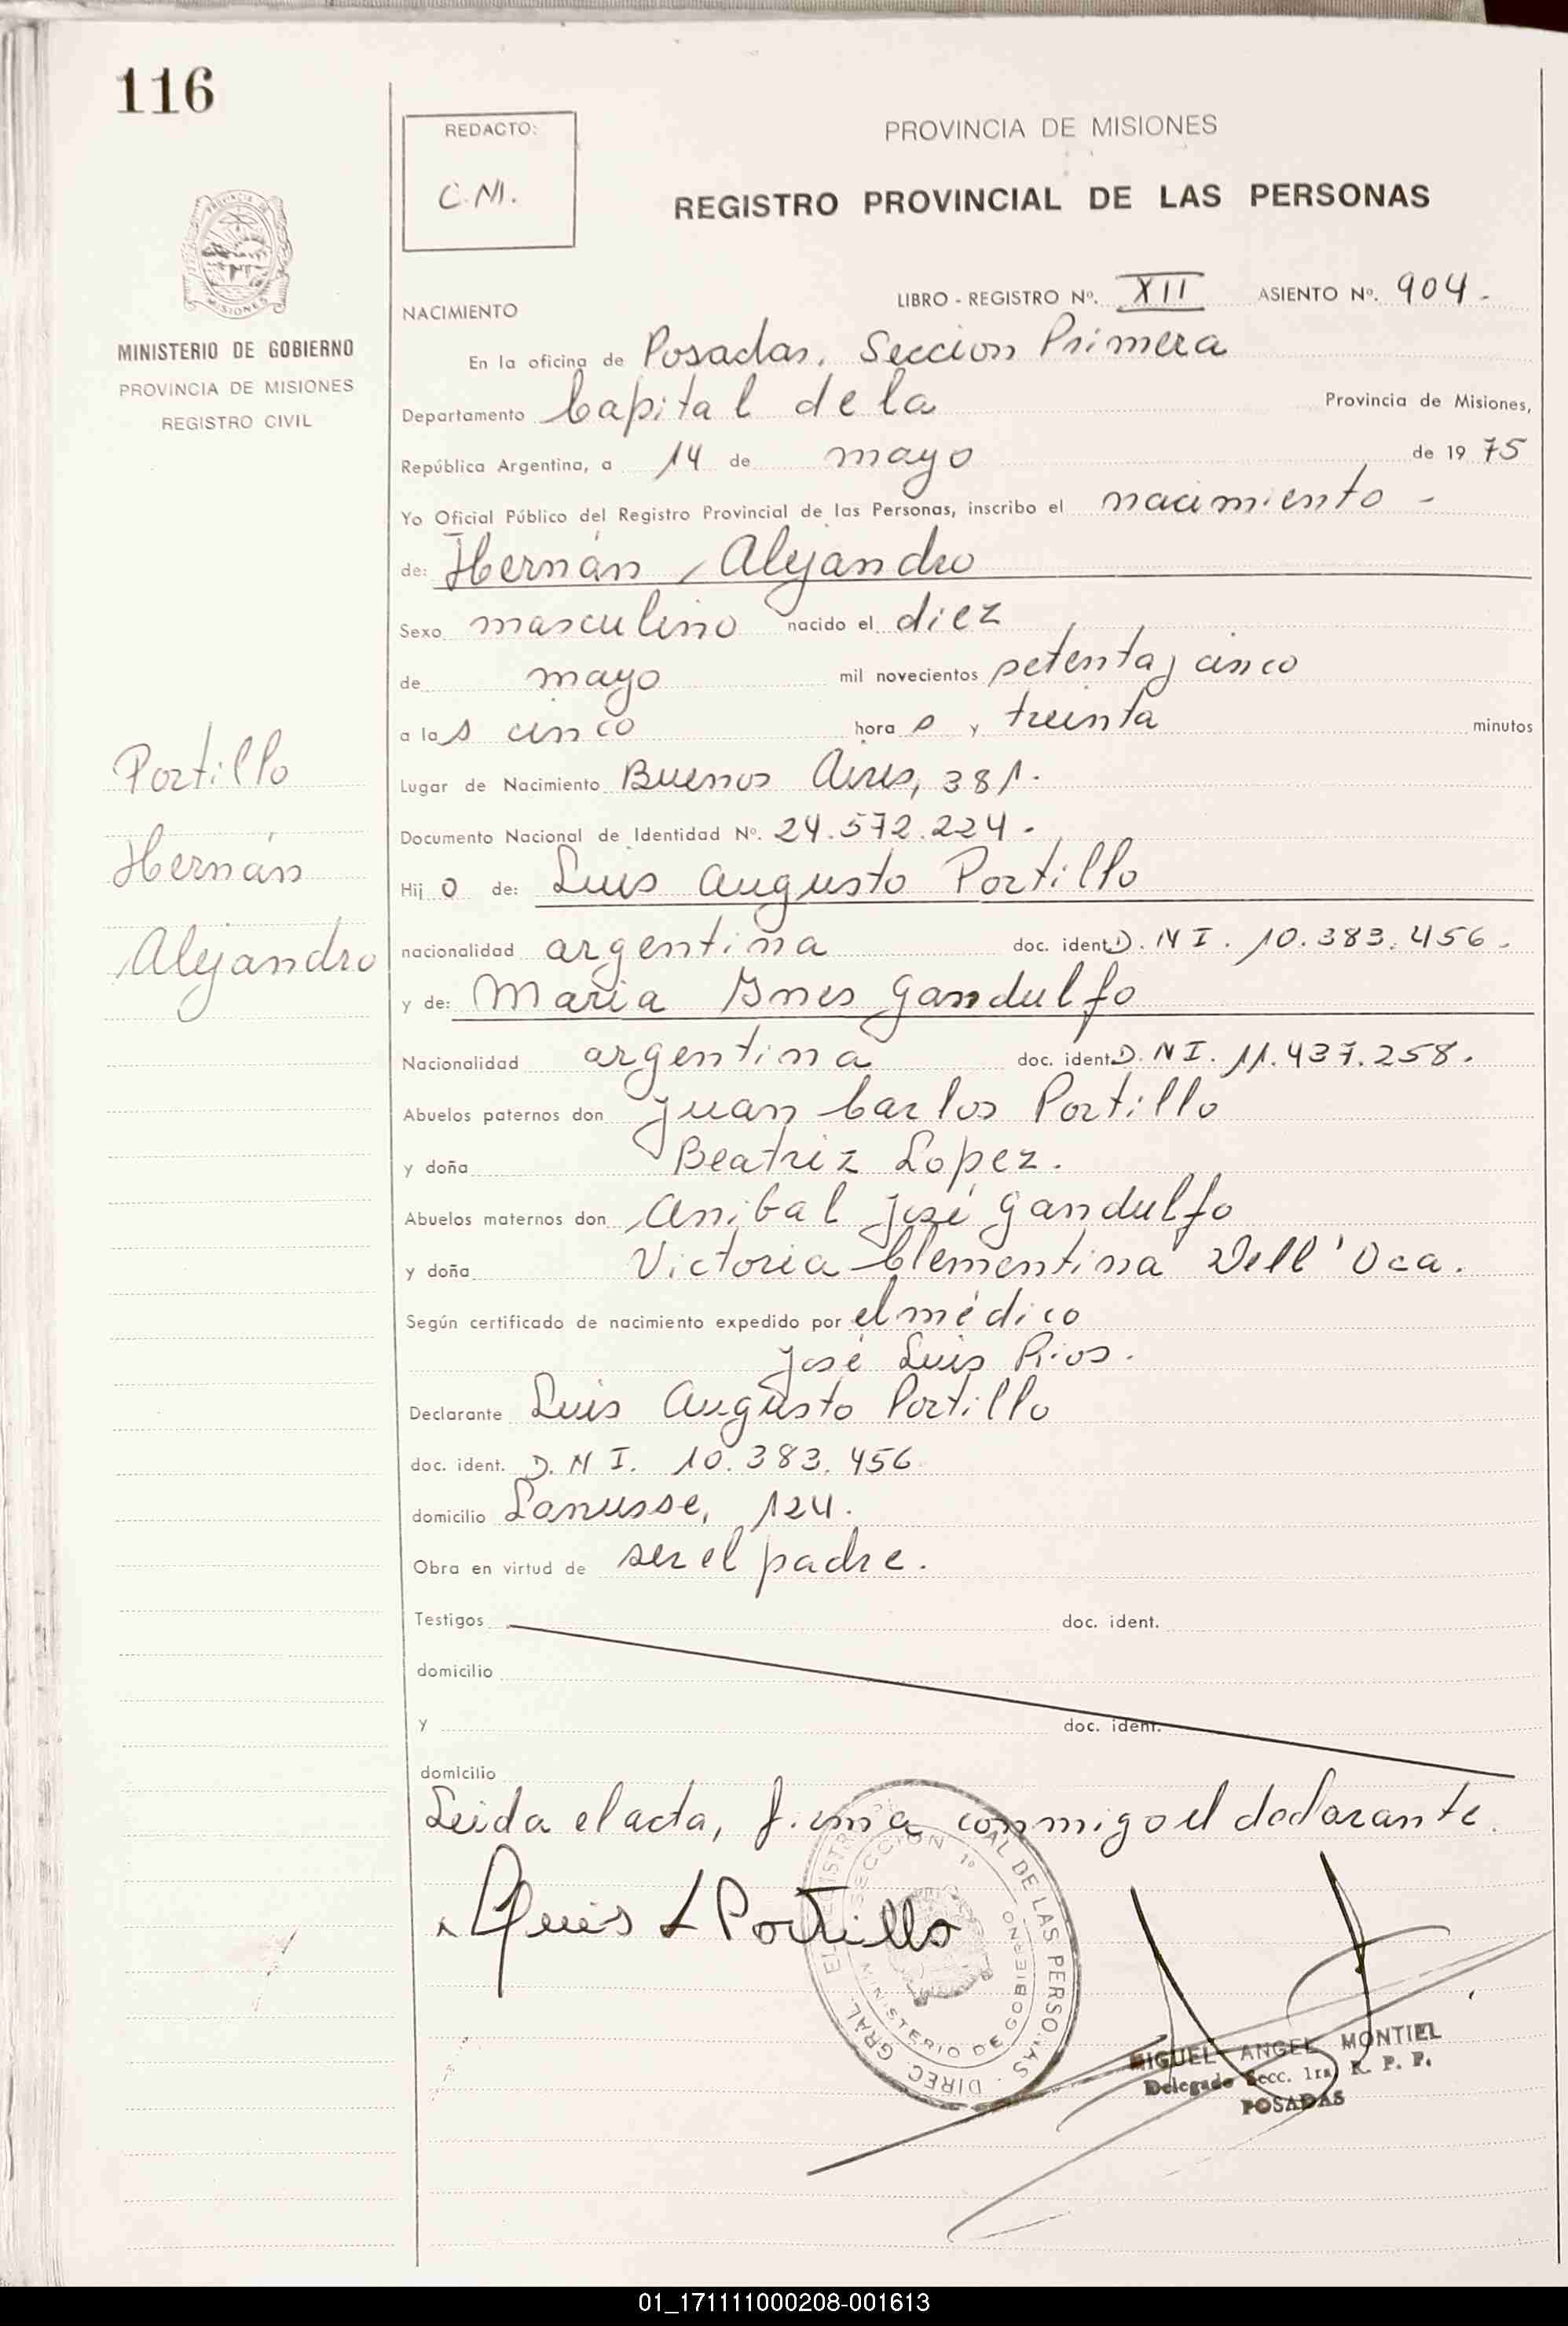 116
REDACTO:
C.M.
PROVINCIA DE MISIONES
REGISTRO PROVINCIAL DE LAS PERSONAS
MINISTERIO DE GOBIERNO
PROVINCIA DE MISIONES
REGISTRO CIVIL
NACIMIENTO
LIBRO - REGISTRO Nº. XII ASIENTO Nº. 904.-
En la oficina de Posadas, Seccion Primera
Departamento Capital de la Provincia de Misiones,
República Argentina, a 14 de mayo de 1975
Yo Oficial Público del Registro Provincial de las Personas, inscribo el nacimiento -
de: Hernán Alejandro
Sexo masculino nacido el diez
de mayo mil novecientos setenta y cinco
a las cinco horas y treinta minutos
Lugar de Nacimiento Buenos Aires, 381.
Documento Nacional de Identidad Nº. 24.572.224.
Hijo de: Luis Augusto Portillo
nacionalidad argentina doc. ident. D.N I. 10.383.456.
y de: Maria Ines Gandulfo
Nacionalidad argentina doc. ident. D.N I. 11.437.258.
Abuelos paternos don Juan Carlos Portillo
y doña Beatriz Lopez.
Abuelos maternos don Anibal José Gandulfo
y doña Victoria Clementina Dell'Oca.
Según certificado de nacimiento expedido por el médico
José Luis Rios.
Declarante Luis Augusto Portillo
doc. ident. D.N I. 10.383.456
domicilio Lanusse, 124.
Obra en virtud de ser el padre.
Testigos doc. ident.
domicilio
y doc. ident.
domicilio
Leida el acta, firma conmigo el declarante.
Portillo
Hernán
Alejandro
Luis A Portillo
DIREC. GRAL. DE LAS PERSONAS
SECCION 1º
MINISTERIO DE GOBIERNO
MIGUEL ANGEL MONTIEL
Delegado Secc. 1ra. R. P. P.
POSADAS
01_171111000208-001613